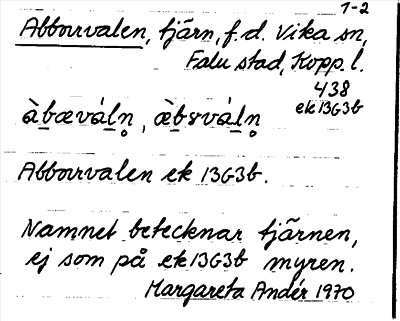 1-2
Abborrvalen, tjärn, f.d. Vika sn,
Falu stad, Kopp. l.
438
ek 13G3b
àbæváln, æ̀bɤváln
Abborrvalen ek 13G3b.
Namnet betecknar tjärnen,
ej som på ek 13G3b myren.
Margareta Andér 1970